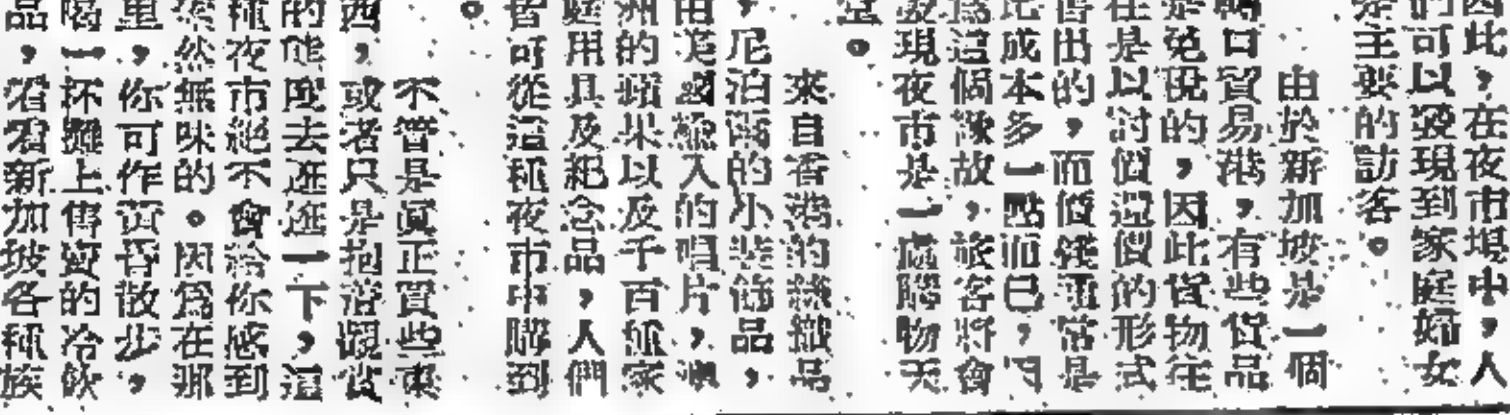 因此,在夜市場中,人
們可以發現到家庭婦女
是主要的訪客。
由於新加坡是一個
轉口貿易港,有些貨品
是免稅的,因此貨物往
往是以討價還價的形式
售出的,而價錢通常是
比成本多一點而已,
爲這個緣故,旅客將會
發現夜市是一處購物天
堂。
來自香港的針織品
,尼泊爾的小裝飾品,
由美國輸入的唱片,
洲的蘋果以及千百種家
庭用具及紀念品,人們
皆可從這種夜市中購到
。
不管是眞正買些東
西,或者只是抱着觀賞
的態度去逛逛一下,這
種夜市絕不會給你感到
索然無味的。因爲在那
里,你可作黃昏散步,
喝一杯攤上售賣的冷飲
品,看看新加坡各種族